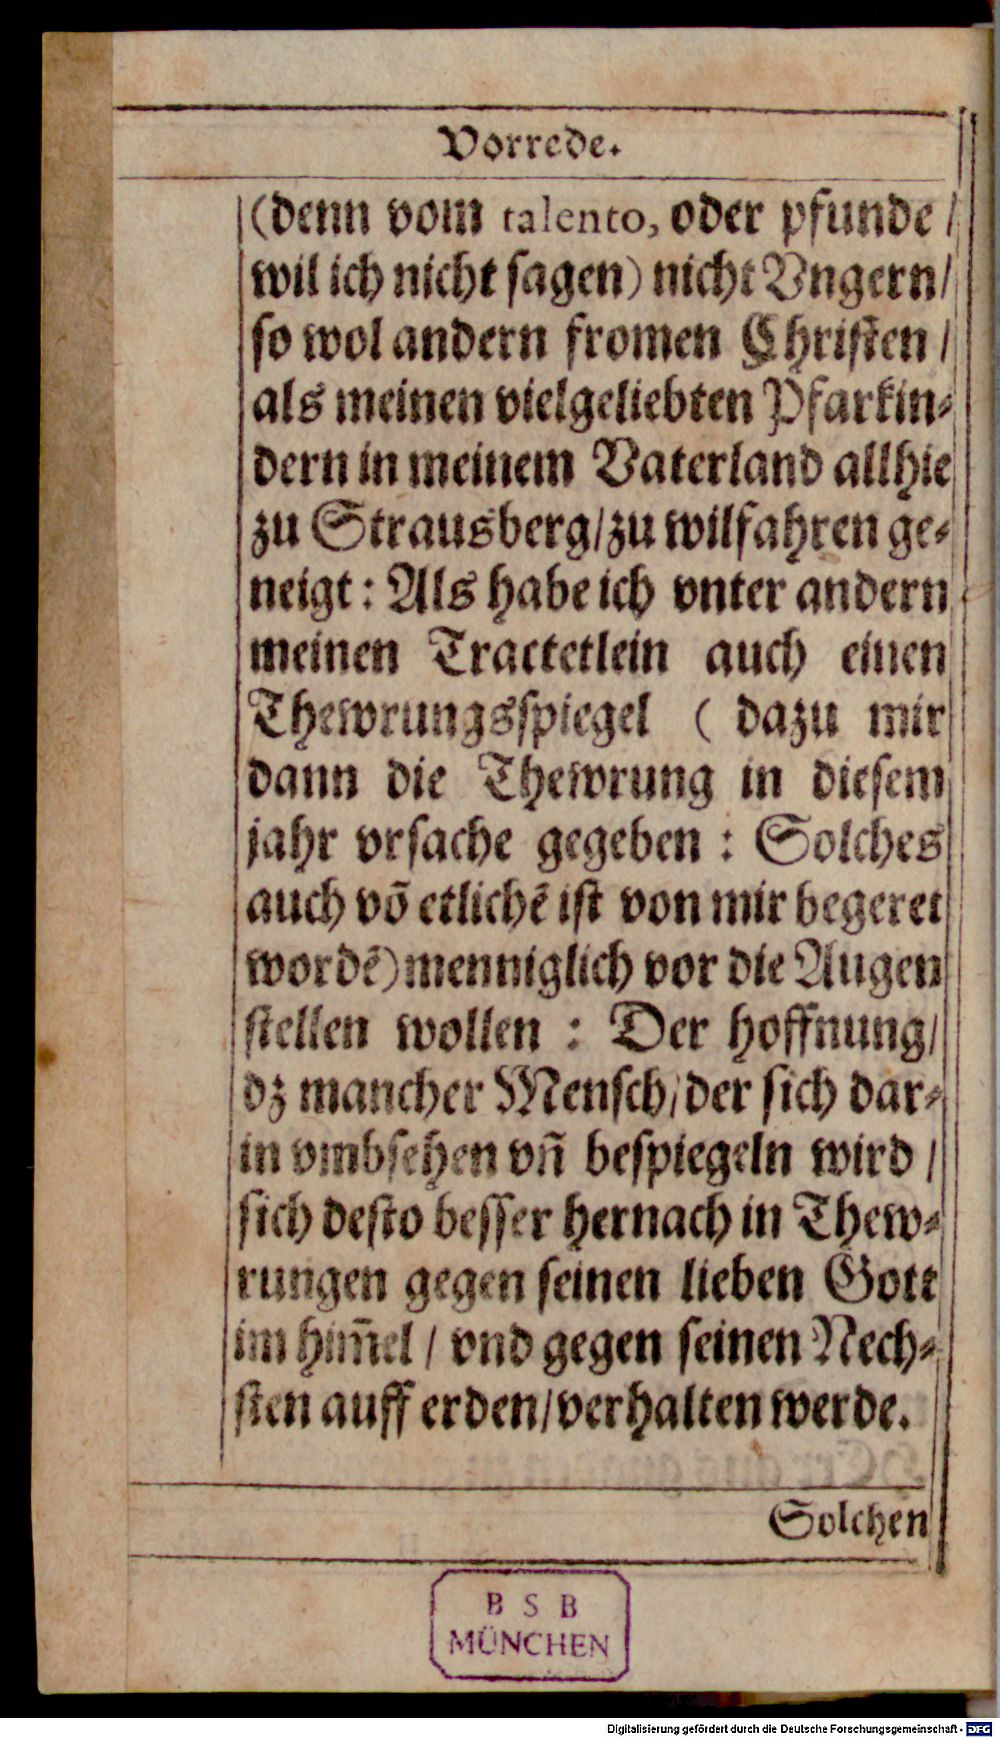 Vorrede.
(denn vom talento, oder pfunde /
wil ich nicht sagen) nicht Vngern /
so wol andern fromen Christen /
als meinen vielgeliebten Pfarkin⸗
dern in meinem Vaterland allhie
zu Strausberg / zu wilfahren ge⸗
neigt : Als habe ich vnter andern
meinen Tractetlein auch einen
Thewrungsspiegel ( dazu mir
dann die Thewrung in diesem
jahr vrsache gegeben : Solches
auch võ etlichẽ ist von mir begeret
wordẽ) menniglich vor die Augen
stellen wollen : Der hoffnung /
dz mancher Mensch / der sich dar⸗
in vmbsehen vñ bespiegeln wird /
sich desto besser hernach in Thew⸗
rungen gegen seinen lieben Gott
im him̃el / vnd gegen seinen Nech⸗
sten auff erden / verhalten werde.
Solchen
B S B
MÜNCHEN
Digitalisierung gefördert durch die Deutsche Forschungsgemeinschaft - DFG